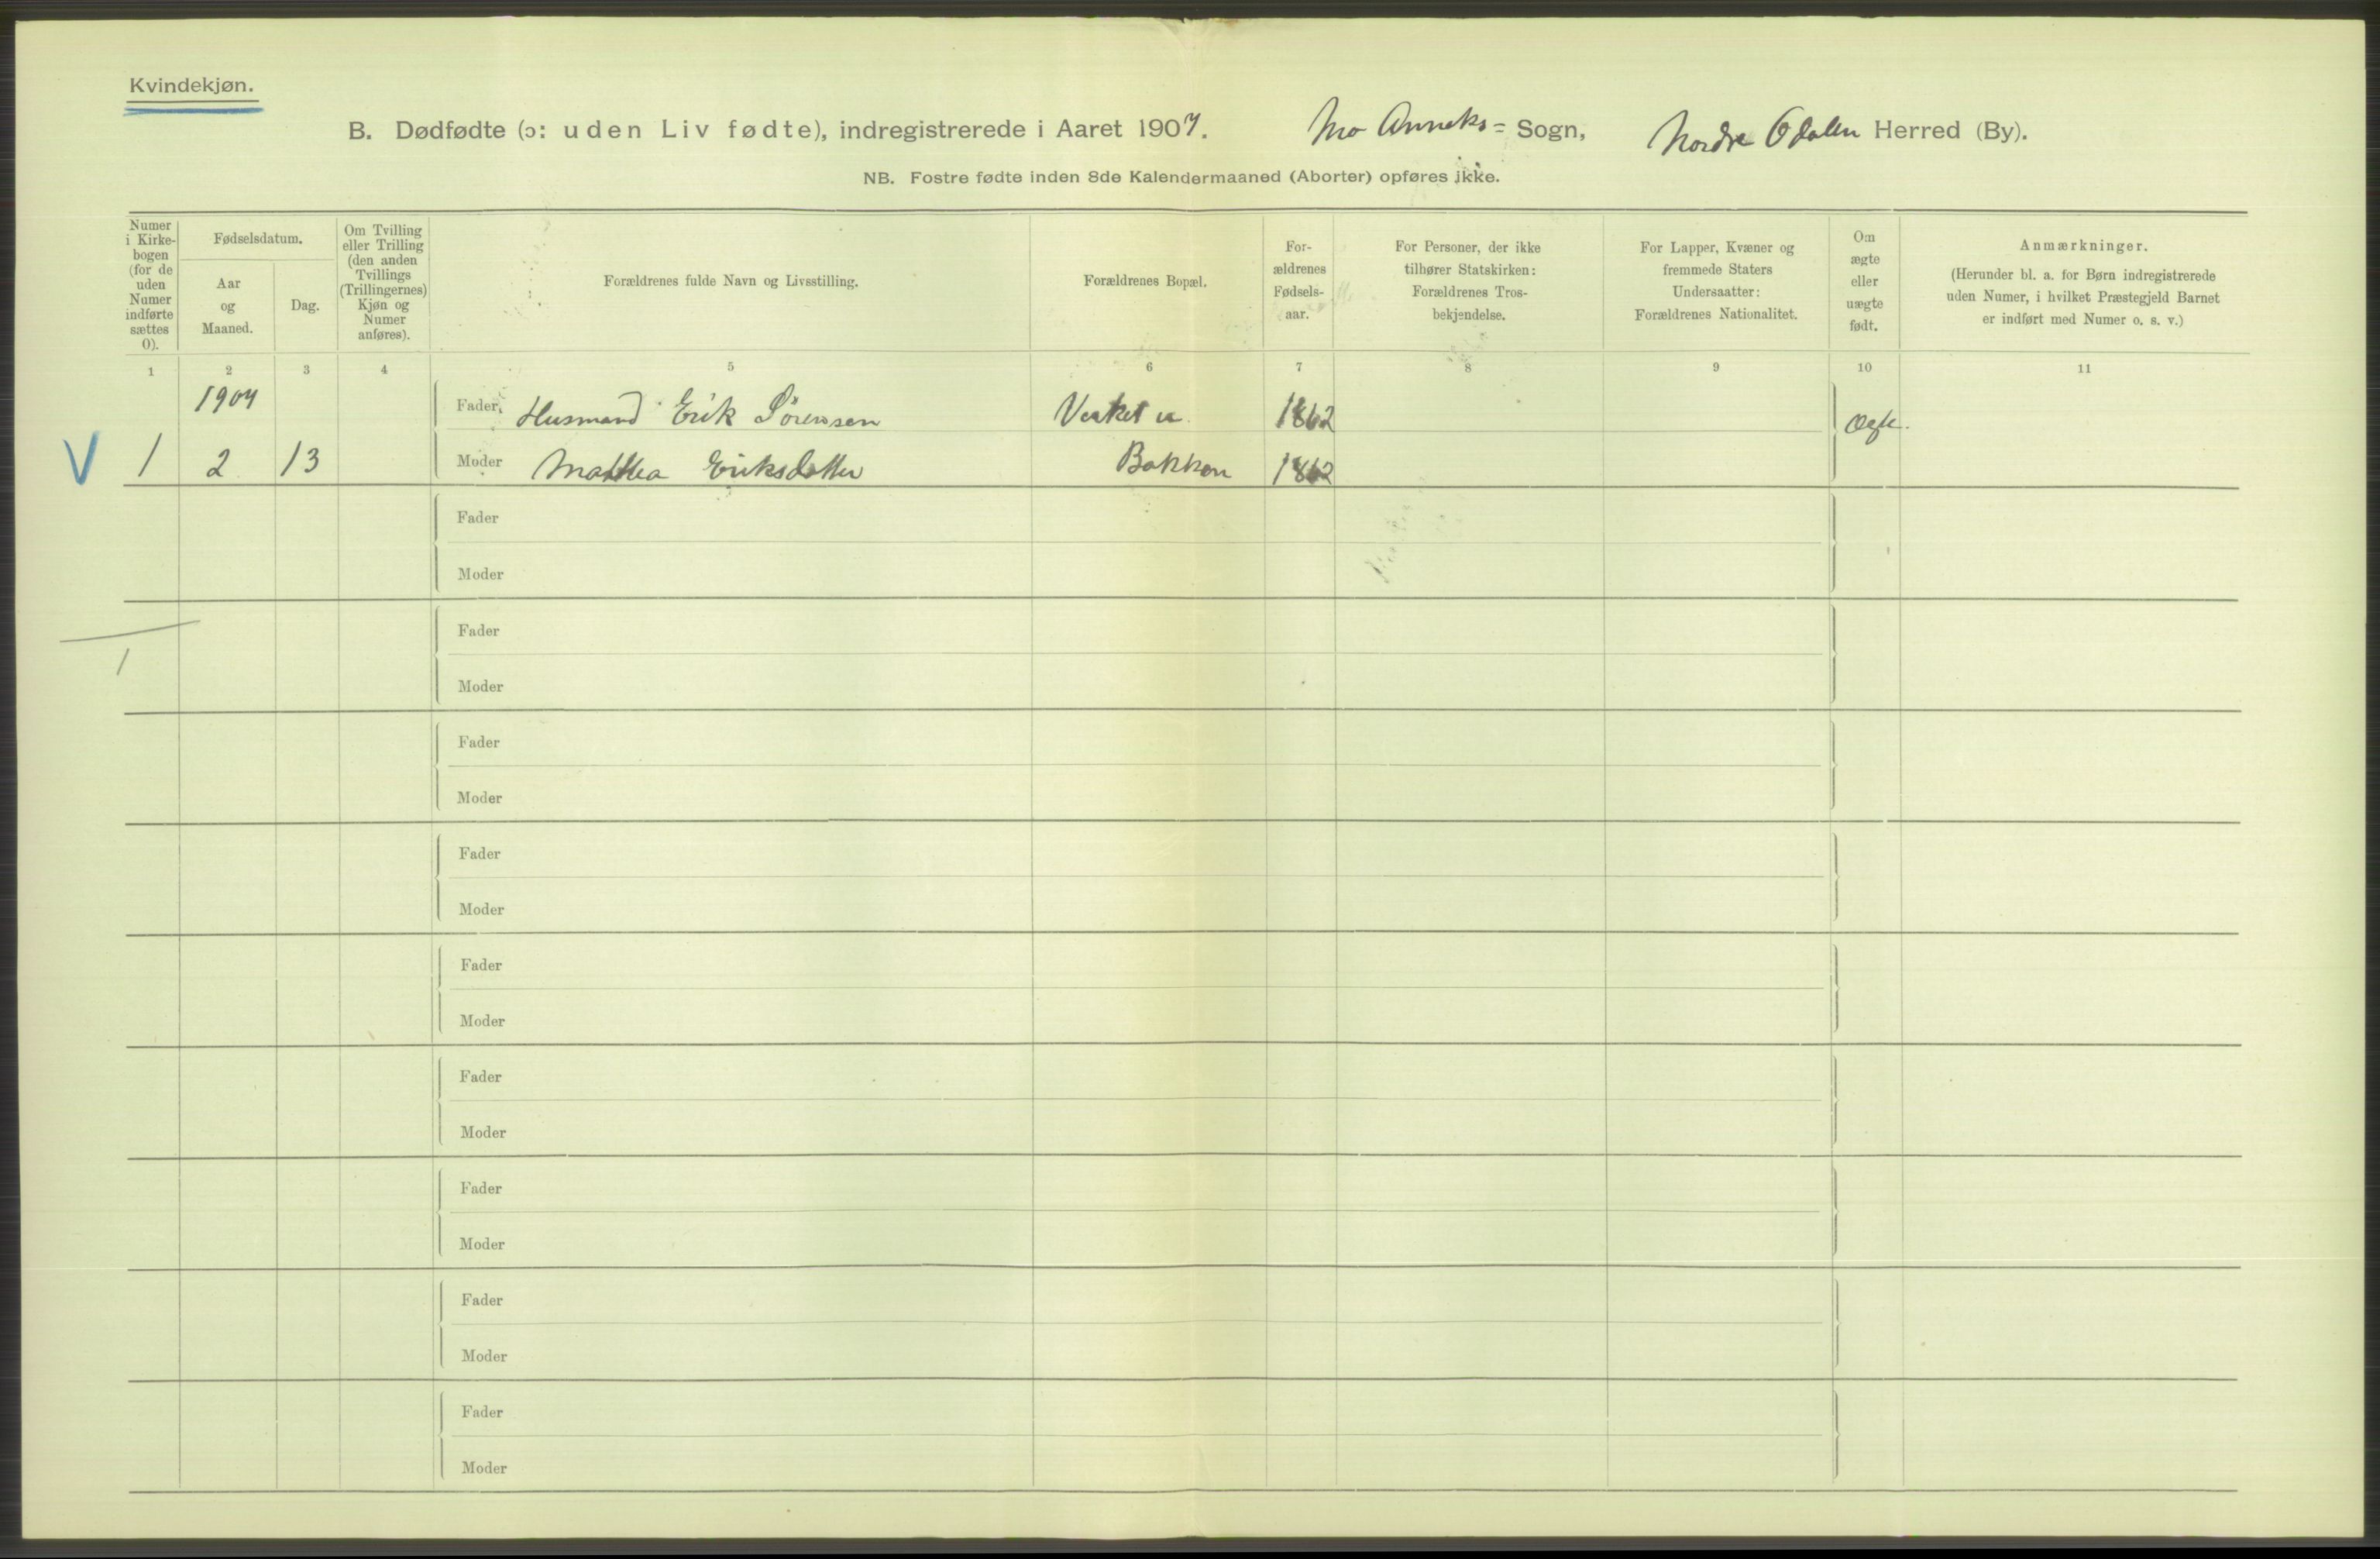 Kvindekjøn.
B. Dødfødte (ɔ: uden Liv fødte), indregistrerede i Aaret 1907. Mo Anneks= Sogn, Nordre Odalen Herred (By).
NB. Fostre fødte inden 8de Kalendermaaned (Aborter) opføres ikke.
Numer
i Kirke-
bogen
(for de
uden
Numer
indførte
sættes
0).
Fødselsdatum.
Aar
og
Maaned.
Dag.
Om Tvilling
eller Trilling
(den anden
Tvillings
(Trillingernes)
Kjøn og
Numer
anføres).
Forældrenes fulde Navn og Livsstilling.
Forældrenes Bopæl.
For-
ældrenes
Fødsels-
aar.
For Personer, der ikke
tilhører Statskirken:
Forældrenes Tros-
bekjendelse.
For Lapper, Kvæner og
fremmede Staters
Undersaatter:
Forældrenes Nationalitet.
Om
ægte
eller
uægte
født.
Anmærkninger.
(Herunder bl. a. for Børn indregistrerede
uden Numer, i hvilket Præstegjeld Barnet
er indført med Numer o. s. v.)
1 2 3 4 5 6 7 8 9 10 11
1907 Fader Husmand Erik Sörensen Verket u. 1862 Ægte.
V 1 2 13 Moder Mathea Eriksdatter Bakken 1862
Fader
Moder
Fader
1
Moder
Fader
Moder
Fader
Moder
Fader
Moder
Fader
Moder
Fader
Moder
Fader
Moder
Fader
Moder